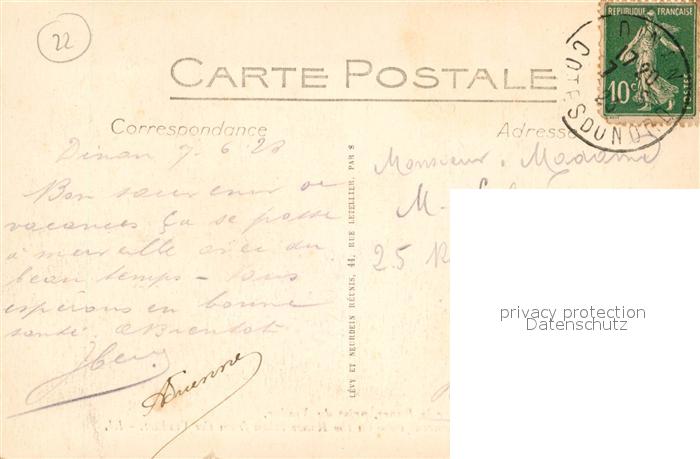 22
REPUBLIQUE FRANÇAISE
10c
POSTES
COTES DU NORD
CARTE POSTALE
Correspondance
Adresse
Dinan 7.6.23
Bon souvenir de
vacances Ça se passe
à merveille avec du
beau temps – Vous
espérons en bonne
santé. A Bientôt
Adrienne
LÉVY ET NEURDEIN RÉUNIS, 44, RUE LETELLIER, PAR S
Monsieur, Madame
M.
25 R
privacy protection
Datenschutz